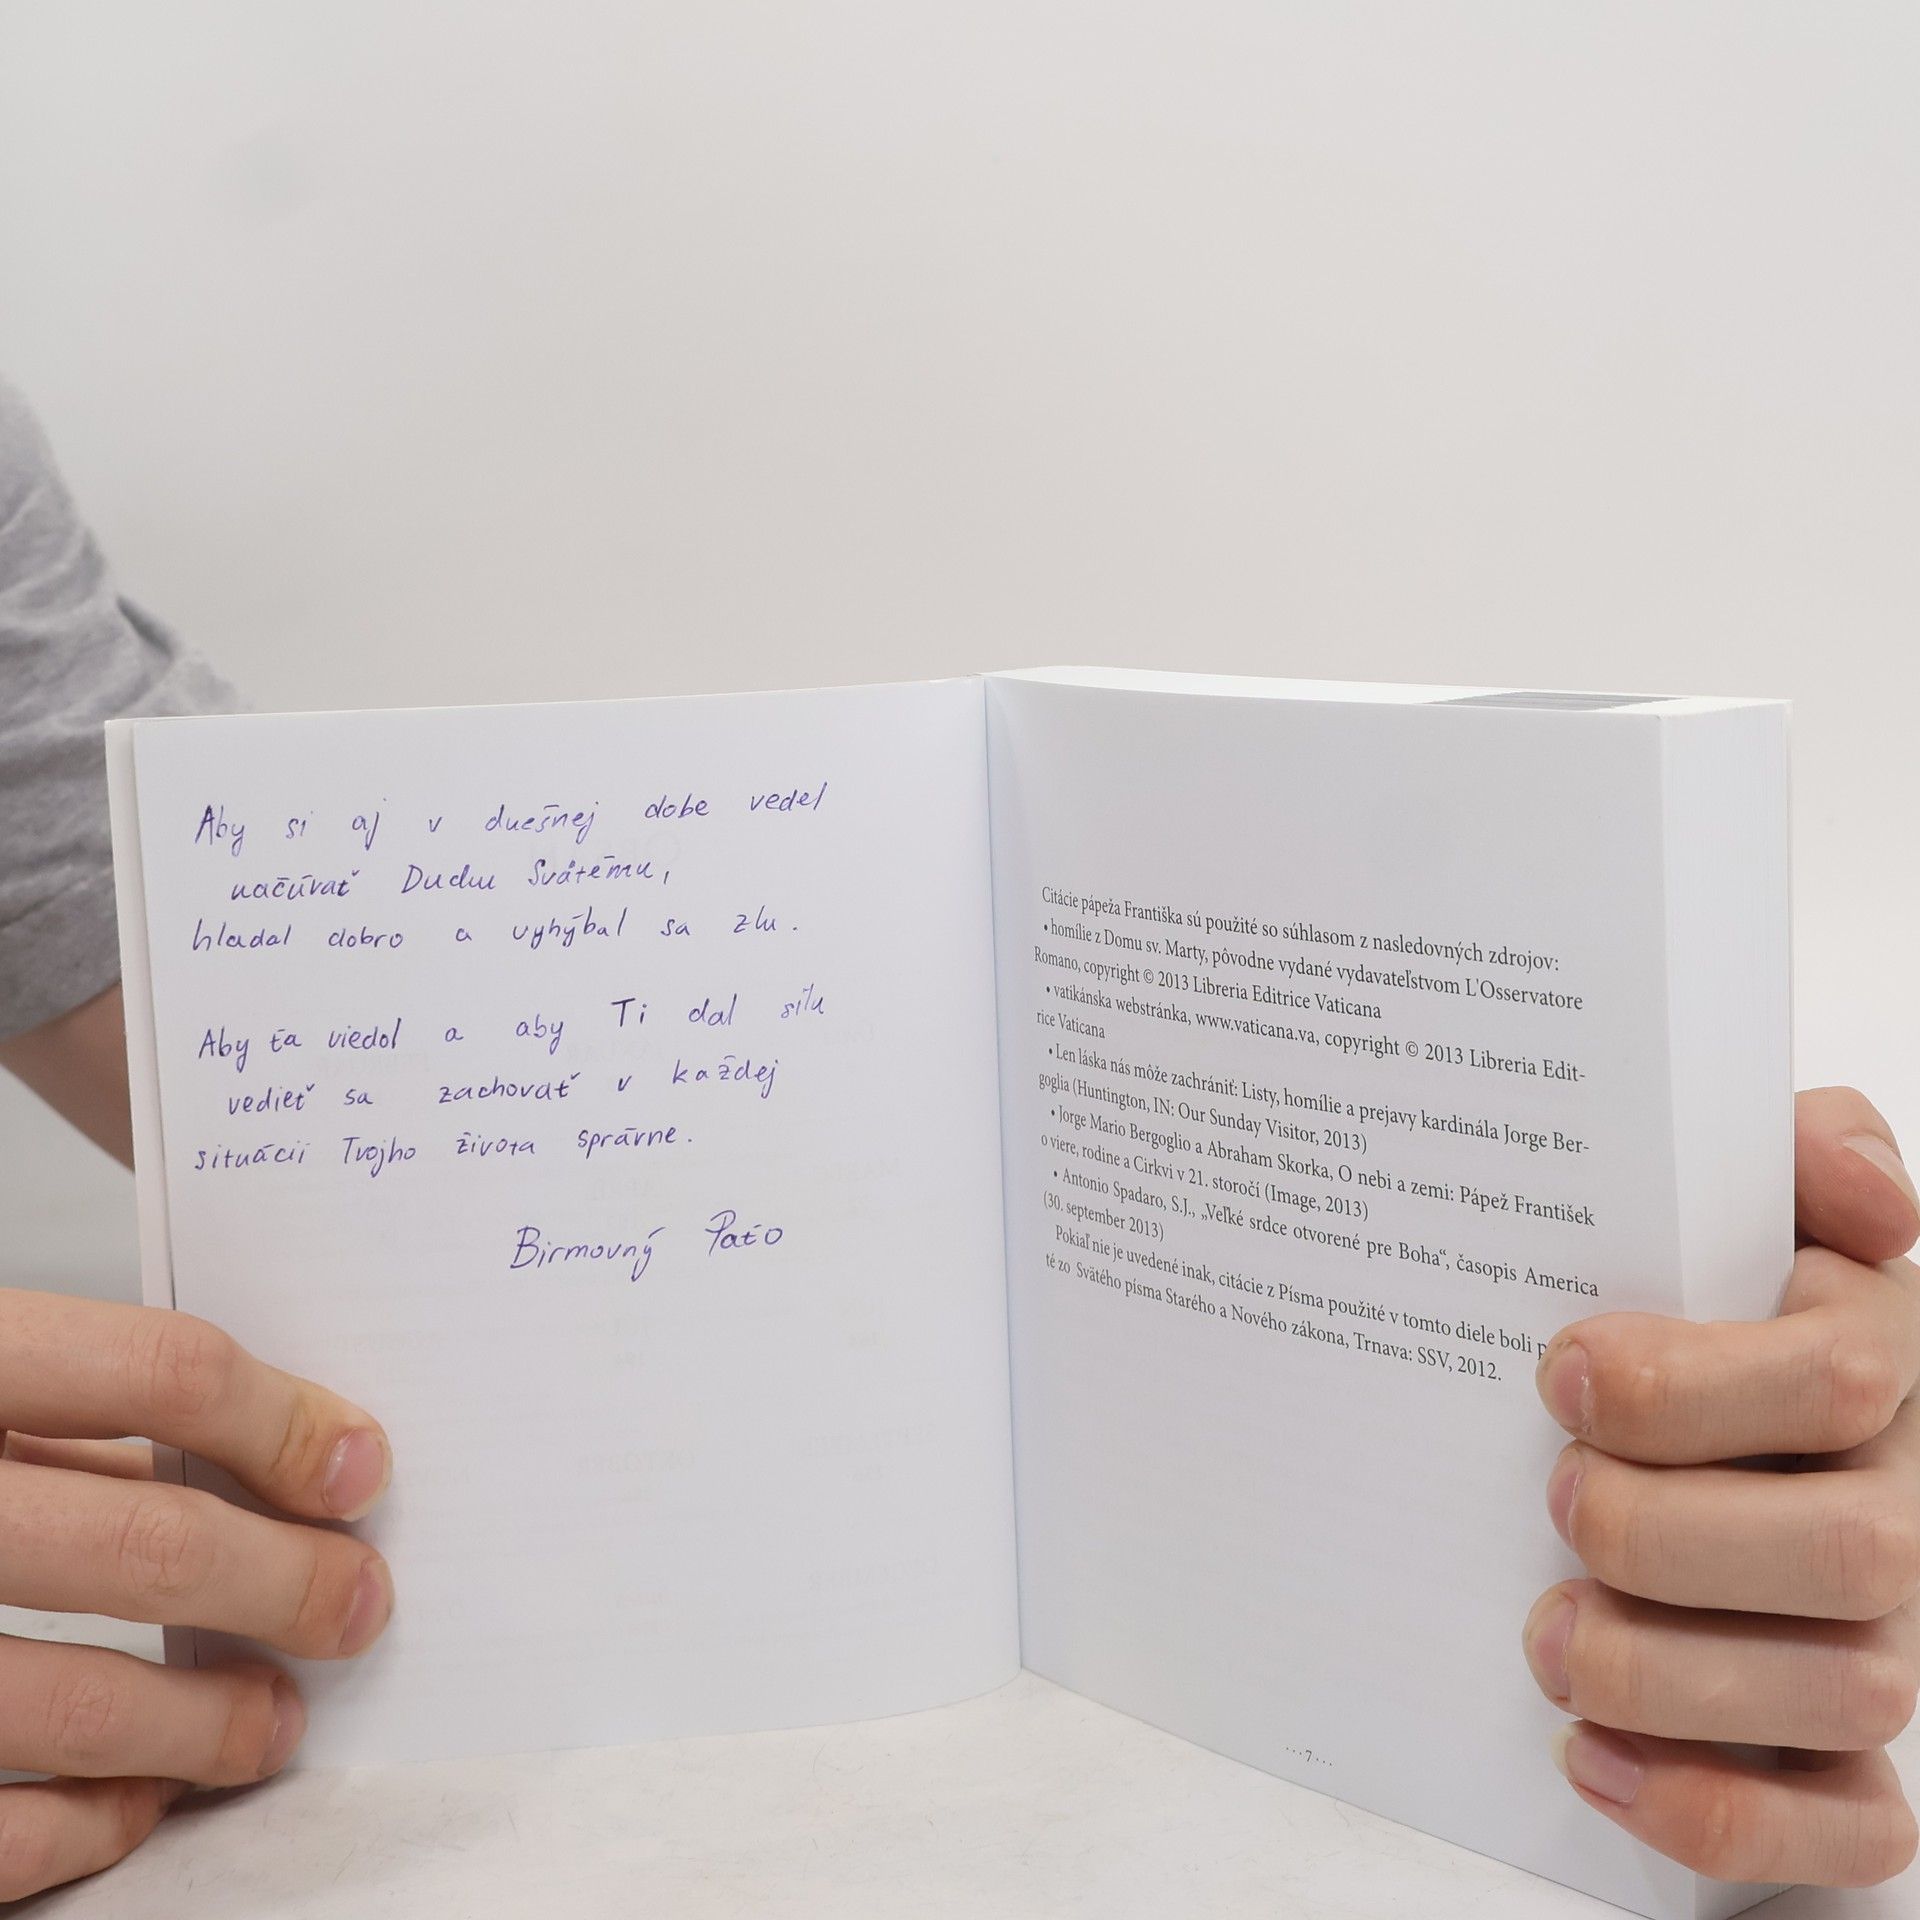 Aby si aj v dnešnej dobe vedel
načúvať Duchu Svätému,
hladal dobro a vyhýbal sa zlu.
Aby ťa viedol a aby Ti dal silu
vedieť sa zachovať v každej
situácií Tvojho života správne.
Birmovný Paťo
Citácie pápeža Františka sú použité so súhlasom z nasledovných zdrojov:
• homílie z Domu sv. Marty, pôvodne vydané vydavateľstvom L'Osservatore
Romano, copyright © 2013 Libreria Editrice Vaticana
• vatikánska webstránka, www.vaticana.va, copyright © 2013 Libreria Edit-
rice Vaticana
• Len láska nás môže zachrániť: Listy, homílie a prejavy kardinála Jorge Ber-
goglia (Huntington, IN: Our Sunday Visitor, 2013)
• Jorge Mario Bergoglio a Abraham Skorka, O nebi a zemi: Pápež František
o viere, rodine a Cirkvi v 21. storočí (Image, 2013)
• Antonio Spadaro, S.J., „Veľké srdce otvorené pre Boha“, časopis America
(30. september 2013)
Pokiaľ nie je uvedené inak, citácie z Písma použité v tomto diele boli
té zo Svätého písma Starého a Nového zákona, Trnava: SSV, 2012.
···7···